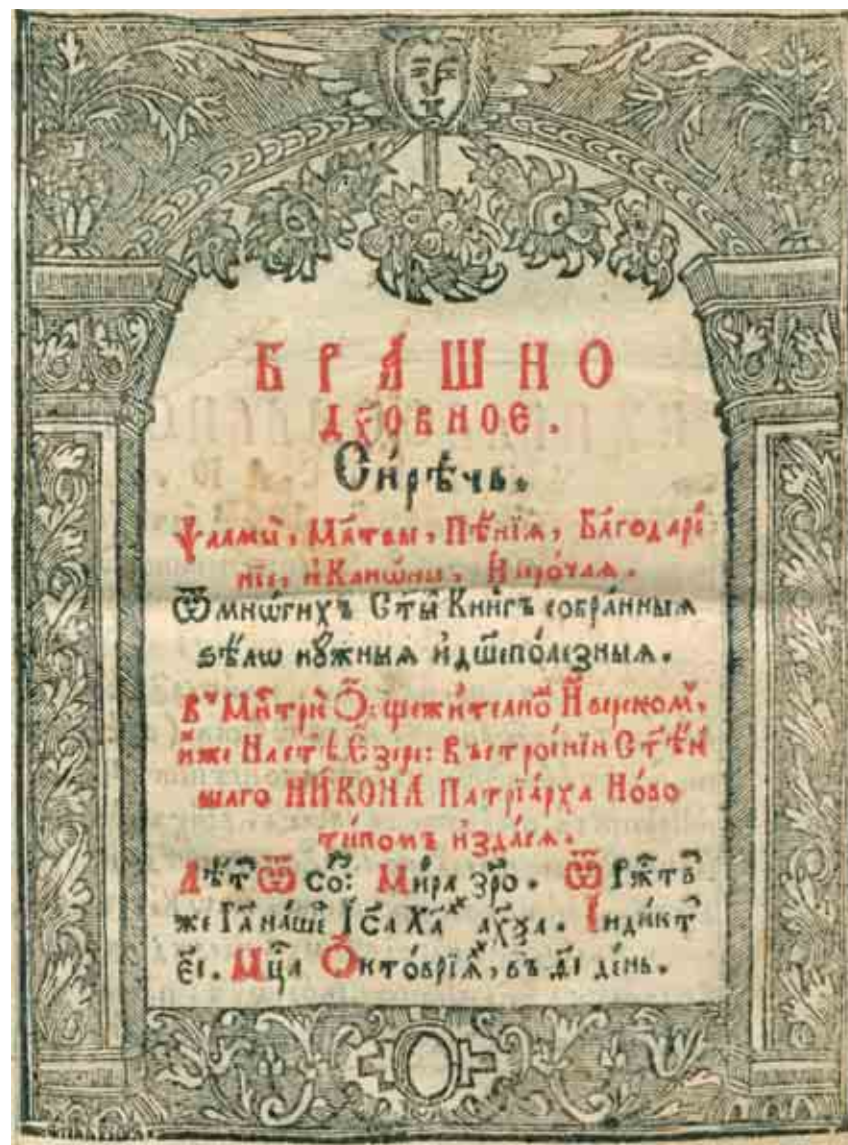 БРА́ШНО
ДХ҃ОВНОЕ.
Си́рѣчь.
Ѱалмы̀, Мл҃твы, Пѣ́нїѧ, Бл҃годаре́
нїе, и҆ Канѡ́ны, И҆ про́чаѧ.
Ѿ мнѡ́гихъ Ст҃ы́ Кни́гъ собра́нныѧ
ѕѣлѡ̀ нꙋ́жныѧ и҆ дш҃еполе́зныѧ.
В Мн҃трѣ̀ Ѻ҆бщежи́телнѡ И҆́верском,
и҆́же На ст҃ѣ́ Е҆́зере: В ъстрое́нїи Ст҃ѣ́й
шаго НИ́КОНА Патрїа́рха Но́во
ти́помъ и҆зда́сѧ.
Лѣ́т Ѿ со: Ми́ра ҂зро. Ѿ Рж҃тв
же Гд҃а на́ше І҆с҃а Хр҃а ҂ахѯа. І҆нди́кт
є҃і. Мц҃а Ѻ҆кто́врїѧ, въ д҃і де́нь.